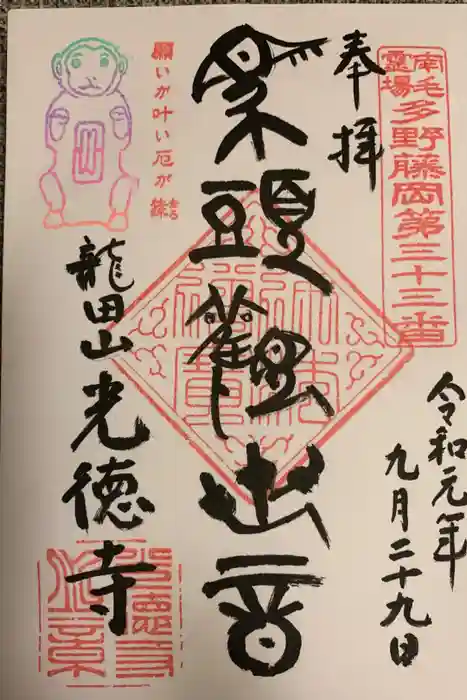 南毛
靈場
多野藤岡第三十三番
令和元年
九月二十九日
奉拝
馬頭觀世音
願いが叶い厄が
去る
龍田山光徳寺